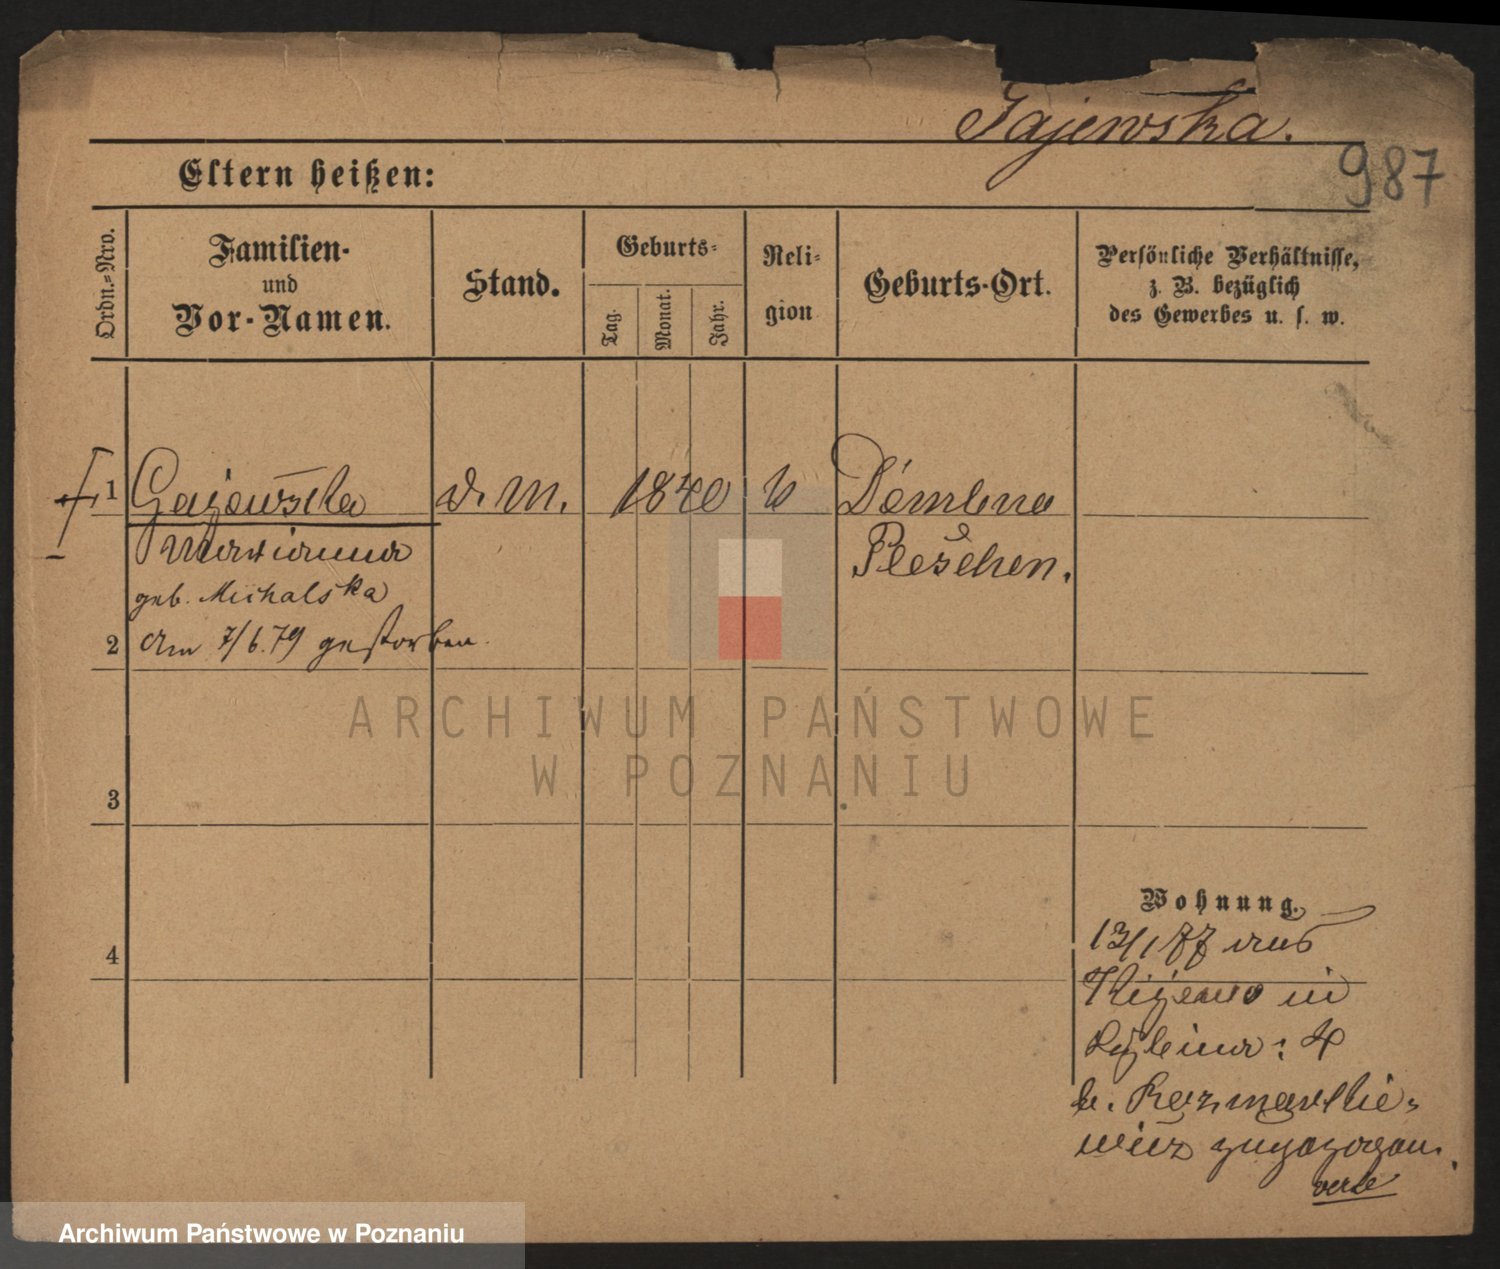 Gajewska.
987
Eltern heißen:
Ordn.-Nro.
Familien-
und
Vor-Namen.
Stand.
Geburts-
Tag.
Monat.
Jahr.
Reli-
gion
Geburts-Ort.
Persönliche Verhältnisse,
z. B. bezüglich
des Gewerbes u. s. w.
1 Gajewska d. M. 1840 k Dembno
Marianna Pleschen.
geb. Michalska
2 am 7/6.79 gestorben.
ARCHIWUM PAŃSTWOWE
W POZNANIU
3
4
Wohnung.
13/1 77 aus
Kijewo in
: 4
b. Kazmarkie-
wicz zugezogen.
verte
Archiwum Państwowe w Poznaniu